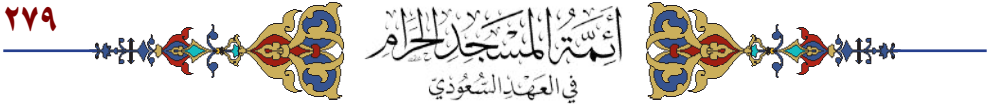 ٢٧٩
أَئِمَّةُ الْمَسْجِدِ الْحَرَامِ
فِي الْعَهْدِ السُّعُودِيّ